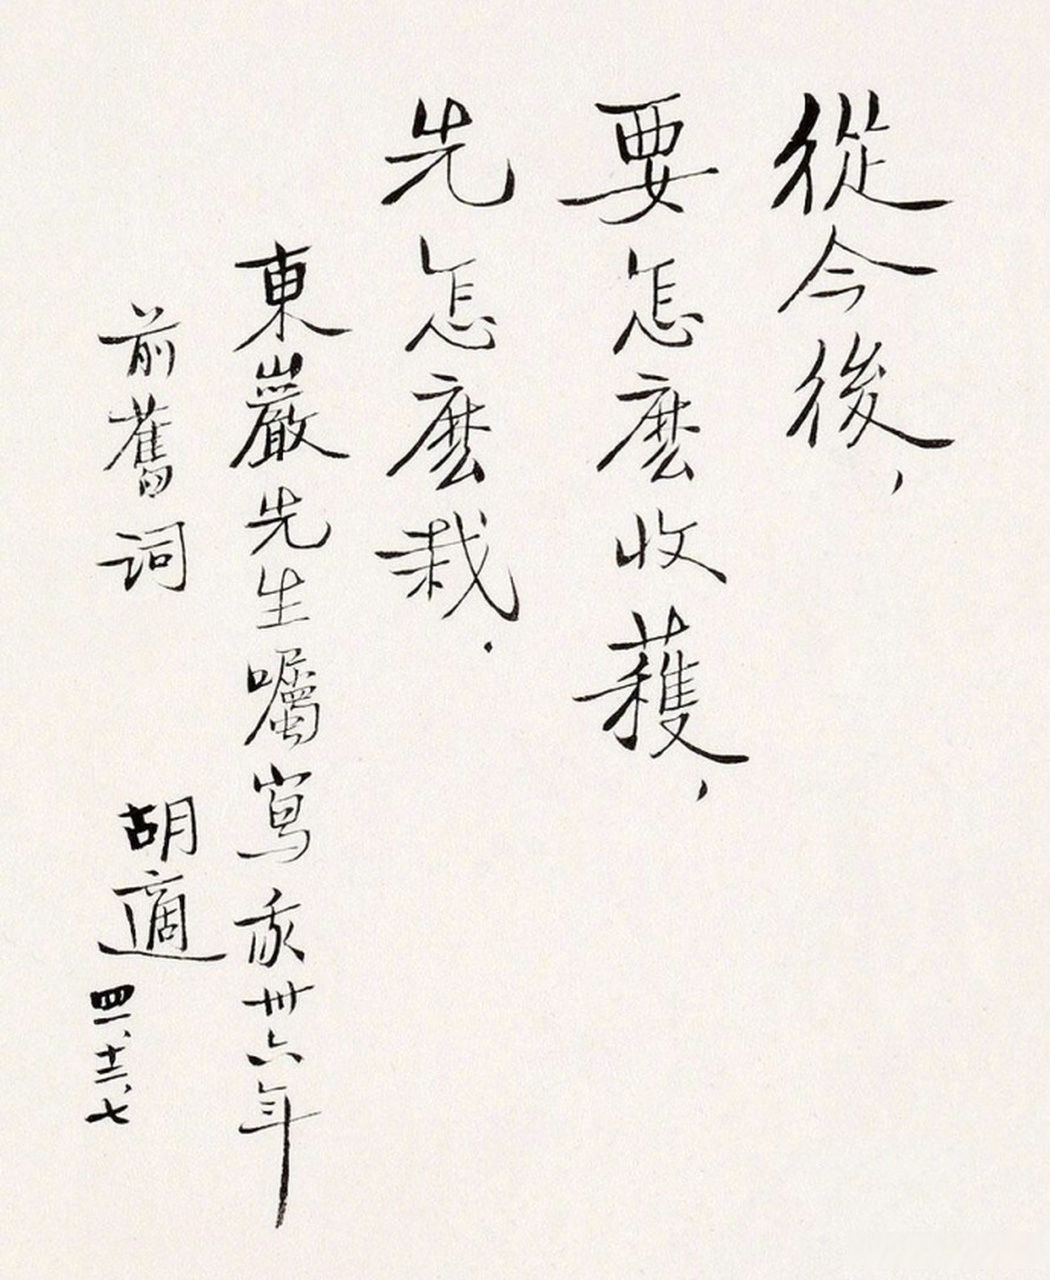 從今後,
要怎麼收穫,
先怎麼栽.
東巖先生囑寫我卅六年
前舊詞
胡適
四一、十二、七